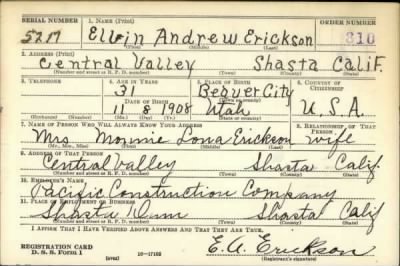 SERIAL NUMBER 1. NAME (Print) ORDER NUMBER
5217 Elvin Andrew Erickson 310
(First) (Middle) (Last)
2. ADDRESS (Print)
Central Valley Shasta Calif.
(Number and street or R. F. D. number) (Town) (County) (State)
3. TELEPHONE 4. AGE IN YEARS 5. PLACE OF BIRTH 6. COUNTRY OF CITIZENSHIP
31 Beaver City
DATE OF BIRTH (Town or county)
11 8 1908 Utah U.S.A.
(Exchange) (Number) (Mo.) (Day) (Yr.) (State or country)
7. NAME OF PERSON WHO WILL ALWAYS KNOW YOUR ADDRESS 8. RELATIONSHIP OF THAT PERSON
Mrs. Lona Erickson wife
(Mr., Mrs., Miss) (First) (Middle) (Last)
9. ADDRESS OF THAT PERSON
Central Valley Shasta Calif.
(Number and street or R. F. D. number) (Town) (County) (State)
10. EMPLOYER'S NAME
Pacific Construction Company
11. PLACE OF EMPLOYMENT OR BUSINESS
Shasta Dam Shasta Calif
(Number and street or R. F. D. number) (Town) (County) (State)
I AFFIRM THAT I HAVE VERIFIED ABOVE ANSWERS AND THAT THEY ARE TRUE.
REGISTRATION CARD
D. S. S. Form 1 16-17105 E. A. Erickson
(over) (Registrant's signature)